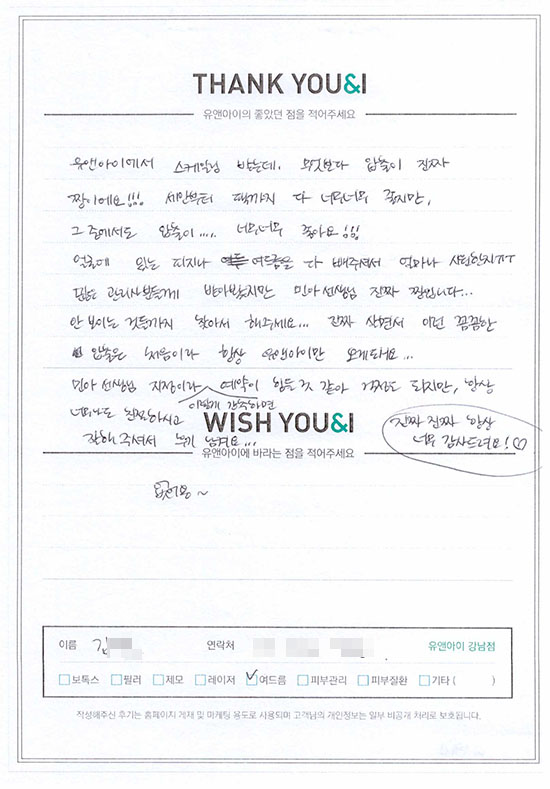 THANK YOU&I
유앤아이의 좋았던 점을 적어주세요
유앤아이에서 스케일링 받는데, 무엇보다 압출이 진짜
짱이에요!!! 세안부터 팩까지 다 너무너무 좋지만,
그 중에서도 압출이.... 너무너무 좋아요!!!
얼굴에 있는 피지나 여드름을 다 빼주셔서 얼마나 시원한지ㅠㅠ
많은 관리사분들께 받아봤지만 민아 선생님 진짜 짱입니다...
안 보이는 것들까지 찾아서 해주세요... 진짜 살면서 이런 꼼꼼한
압출은 처음이라 항상 유앤아이만 오게돼요...
민아 선생님 지정이라 예약이 힘들 것 같아 걱정도 되지만, 항상
너무나도 친절하시고
잘해 주셔서 후기 남겨요...
진짜 진짜 항상
너무 감사드려요!♡
WISH YOU&I
유앤아이에 바라는 점을 적어주세요
없어용~
이름 김
연락처
유앤아이 강남점
보톡스 필러 제모 레이저 여드름 피부관리 피부질환 기타 ( )
작성해주신 후기는 홈페이지 게재 및 마케팅 용도로 사용되며 고객님의 개인정보는 일부 비공개 처리로 보호됩니다.